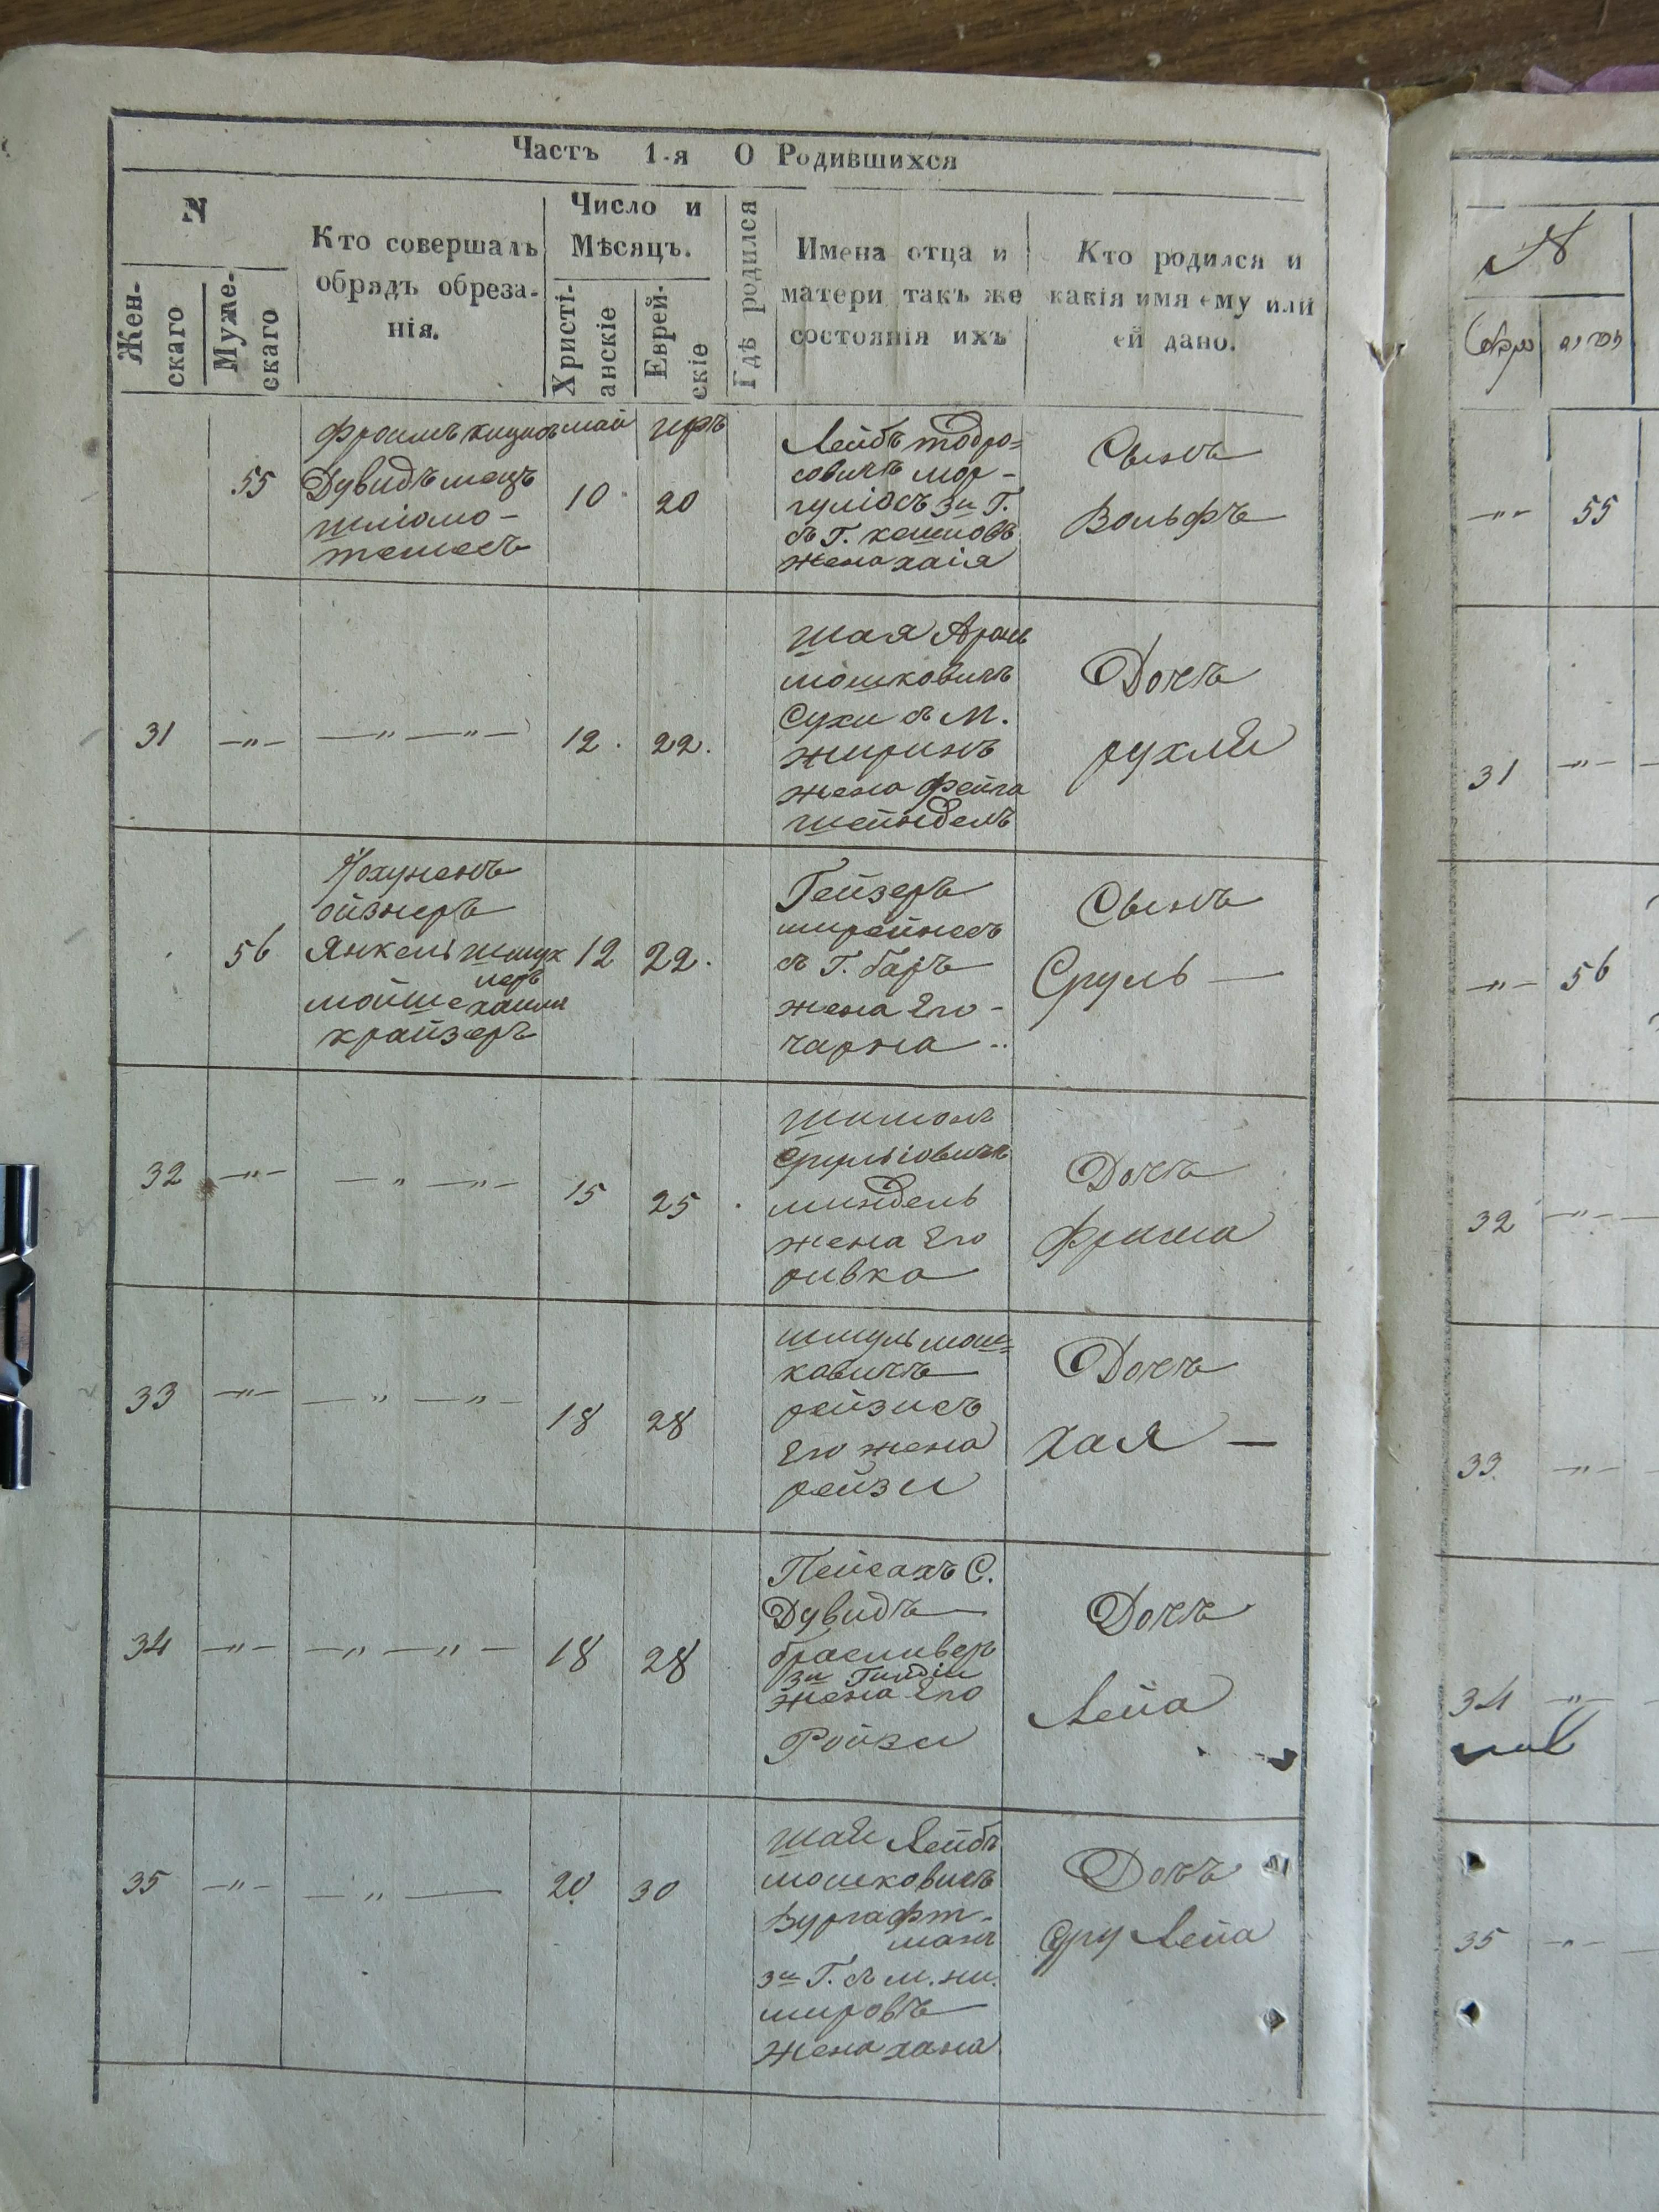 Часть 1-я О Родившихся
N
Жен-
скаго
Муже-
скаго
Кто совершалъ
обрядъ обреза-
нія.
Число и
Мѣсяцъ.
Христі-
анскіе
Еврей-
скіе
Гдѣ родился
Имена отца и
матери такъ же
состоянія ихъ
Кто родился и
какія имя ему или
ей дано.
55
Фроимъ
Дувидъ
май
10
20
Лейбъ тодро=
совичъ мор-
гуліосъ 3й Г.
жена хаія
Сынъ
Вольфъ
31
—"—
—"—"—
12.
22.
шая Аронъ
мошковичъ
Сухи съ М.
жорикъ
жена фейга
шейндель
Дочь
рухля
56
ойзнеръ
Янкель
мойше хаимъ
крайзеръ
12
22.
Гейзеръ
съ Г. баръ
жена Его-
чарна ..
Сынъ
Сруль —
32
—"—
—"—"—
15
25
шимонъ
Срульовичъ
миндель
жена Его
ривка
Дочь
фрима
33
—"—
—"—"—
18
28
шмуль мош=
ковичъ
рейзисъ
Его жена
рейзи
Дочь
хая —
34
—"—
—"—"—
18
28
Пейсахъ С.
Дувидъ
браславеръ
3й Гилдіи
жена Его
Ройзи
Дочь
Лейа
35
—"—
—"—
20
30
шая Лейбъ
мошковичъ
Вургафт-
манъ
3й Г. съ м. не.
мировъ
жена хана
Дочь
Суру Лейа
N
—"—
55
31
—"—
—"—
56
32
—"—
33
—"—
34
—"—
35
—"—